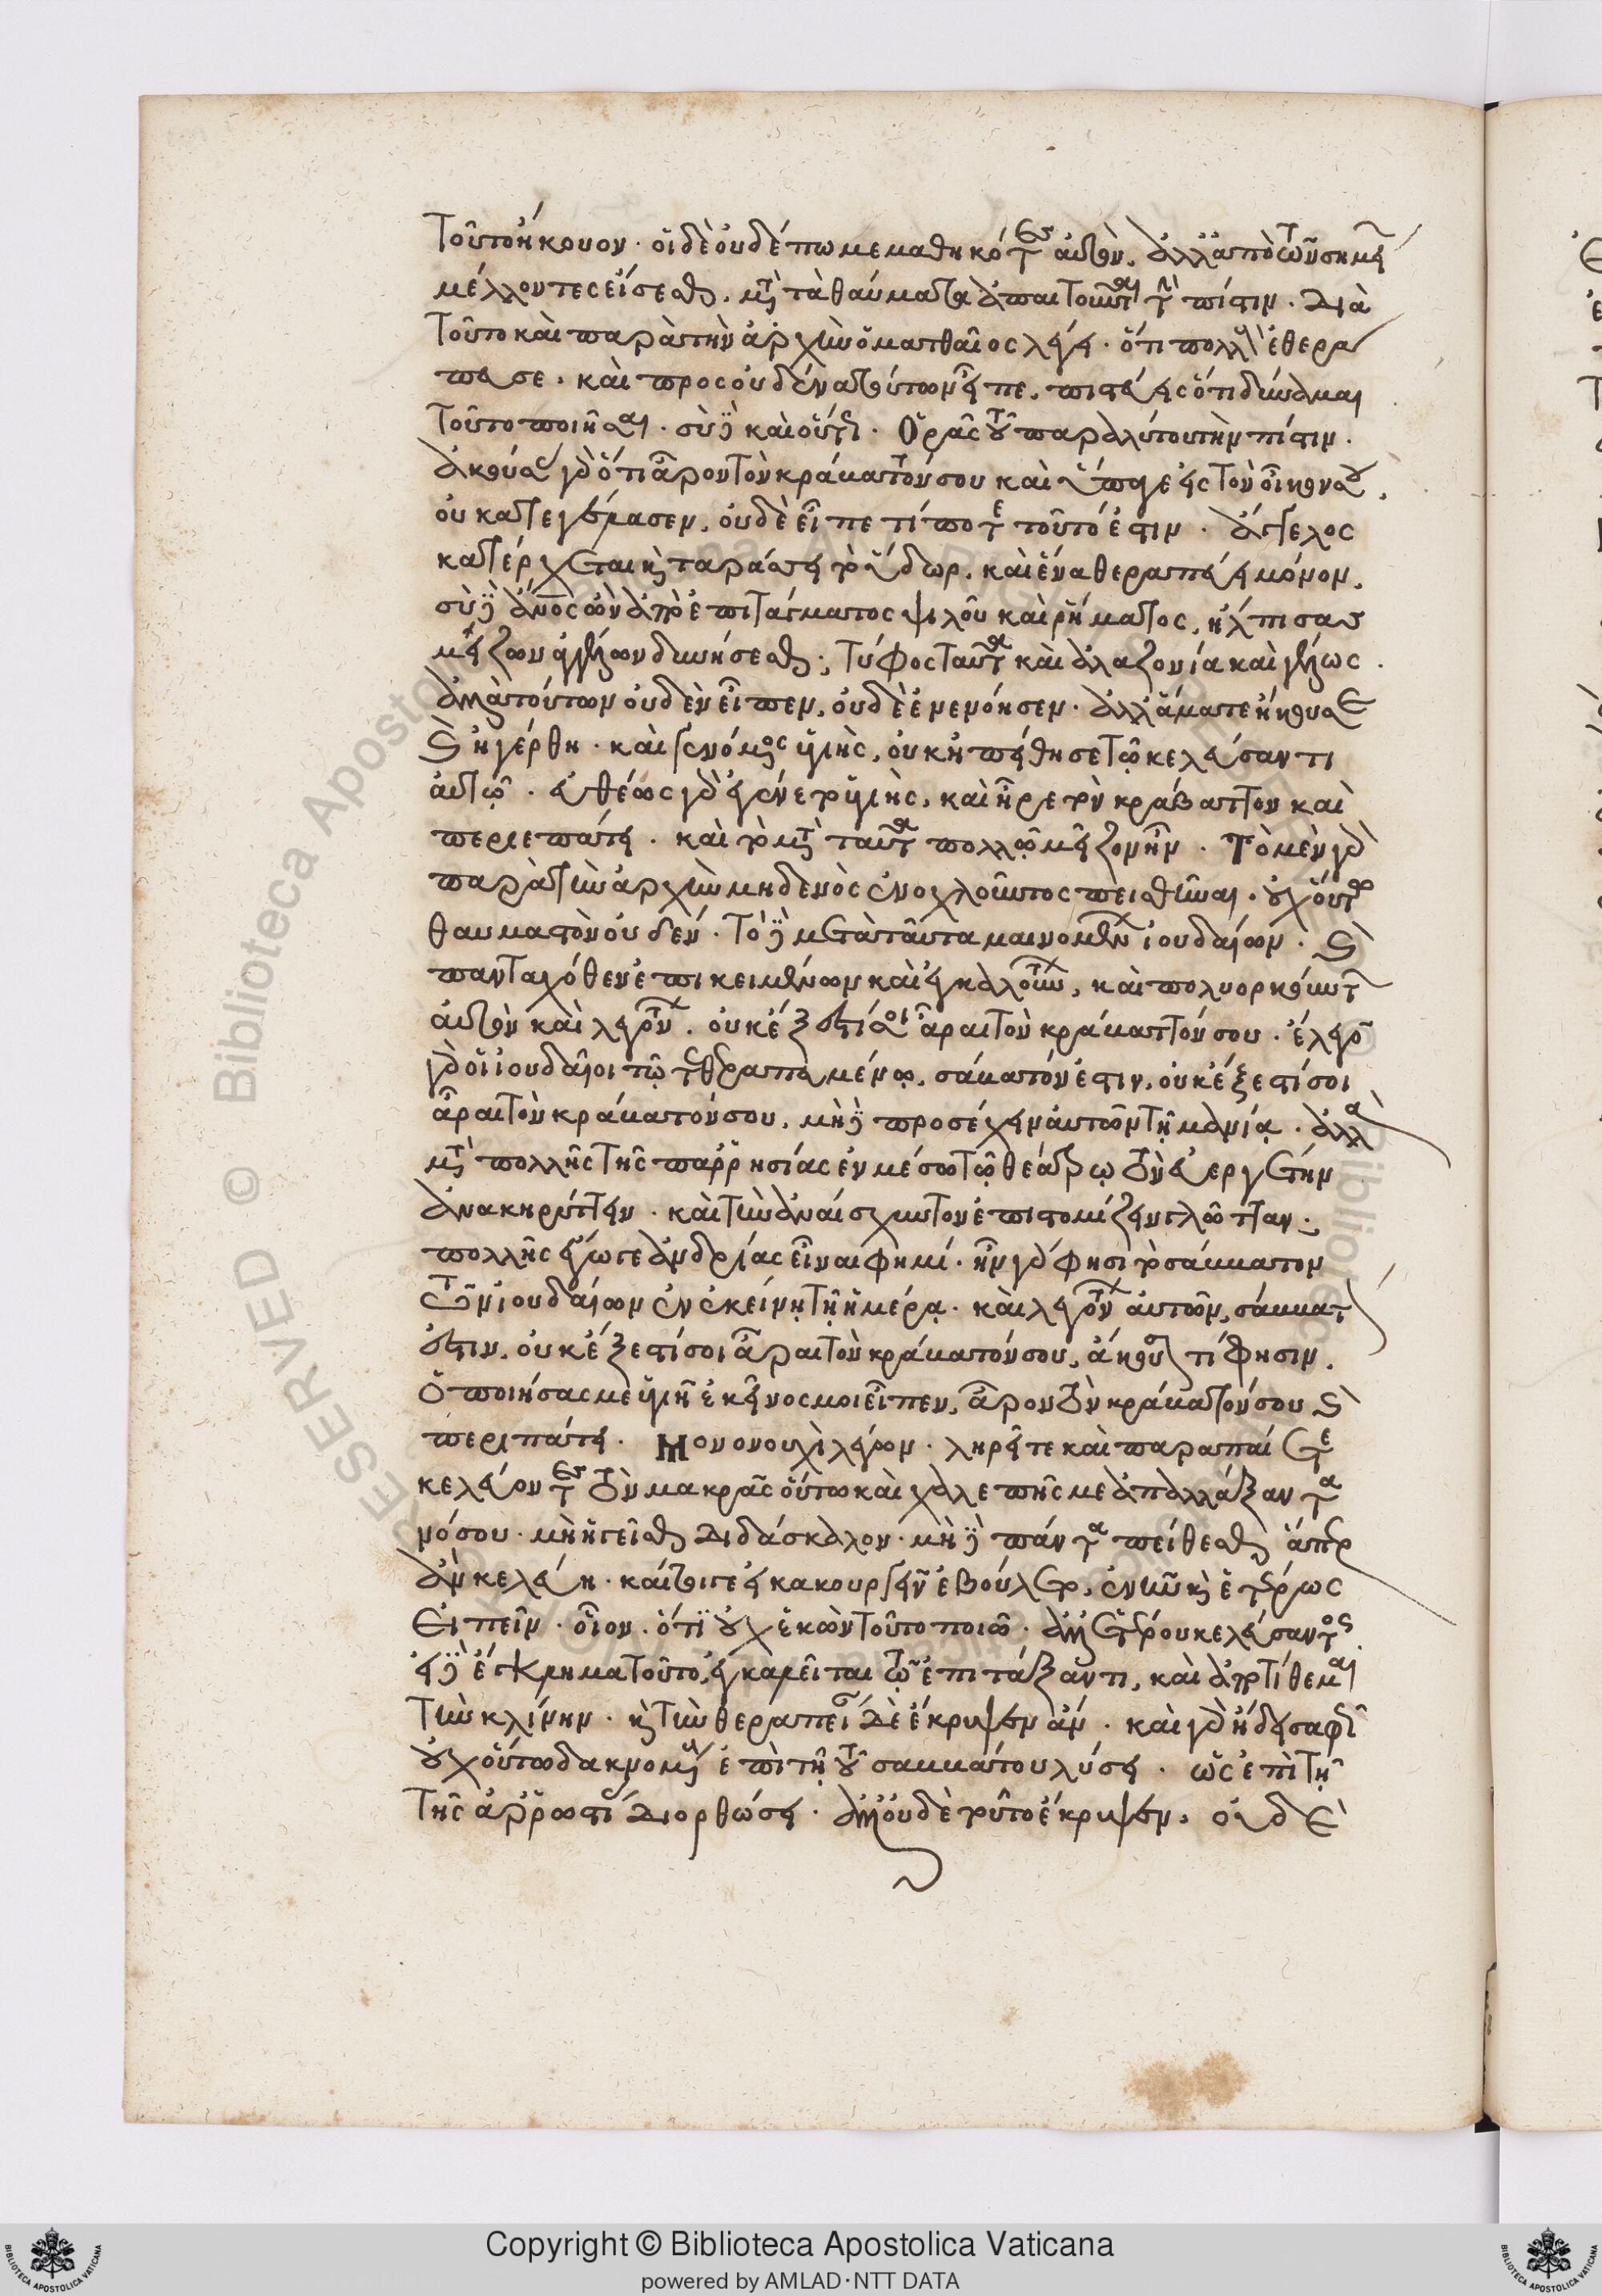 τοῦτο ἤκουον. οἱ δὲ οὐδέπω μεμαθηκότες αὐτὸν. ἀλλ' ἀπὸ τῶν σημεί
μέλλοντες εἴσεσθαι. μετὰ τὰ θαύματα ἀπαιτοῦνται τὴν πίστιν. Διὰ
τοῦτο καὶ παρὰ τὴν ἀρχὴν ὁ ματθαῖος λέγει. ὅτι πολλοὺς ἐθερά
πευσε. καὶ πρὸς οὐδένα αὐτῶν εἶπε. πιστεύεις ὅτι δύναμαι
τοῦτο ποιῆσαι. σὺ δὲ καὶ οὕτως. Ὅρα τοῦ παραλύτου τὴν πίστιν.
ἀκούσας γὰρ ὅτι ἆρον τὸν κράβαττόν σου καὶ ὕπαγε εἰς τὸν οἶκόν σου.
οὐ κατεγέλασεν. οὐδὲ εἶπε τί ποτε τοῦτό ἐστιν. ἄγγελος
κατέρχεται καὶ ταράσσει τὸ ὕδωρ. καὶ ἕνα θεραπεύει μόνον.
σὺ δὲ ἄνθρωπος ὢν ἀπὸ ἐπιτάγματος ψιλοῦ καὶ ῥήματος. ἤλπισας
μεῖζον ἀγγέλων δυνήσεσθαι; τύφος ταῦτα καὶ ἀλαζονία καὶ γέλως.
ἀλλὰ τούτων οὐδὲν εἶπεν. οὐδὲ ἐνενόησεν. ἀλλ' ἅμα τε ἤκουσε
καὶ ἠγέρθη. καὶ γενόμενος ὑγιὴς. οὐκ ἠπείθησε τῷ κελεύσαντι
αὐτῷ. εὐθέως γὰρ ἐγένετο ὑγιὴς. καὶ ἦρε τὸν κράβαττον καὶ
περιεπάτει. καὶ τὸ μετὰ ταῦτα πολλῷ μεῖζον ἦν. Τὸ μὲν γὰρ
παρὰ τὴν ἀρχὴν μηδενὸς ἐνοχλοῦντος πεισθῆναι. οὐχ οὕτω
θαυμαστὸν οὐδέν. Τὸ δὲ μετὰ ταῦτα μαινομένων ἰουδαίων. καὶ
πανταχόθεν ἐπικειμένων καὶ ἐγκαλούντων. καὶ πολιορκούντων
αὐτὸν καὶ λεγόντων. οὐκ ἔξεστί σοι ἆραι τὸν κράβαττόν σου. ἔλεγον
γὰρ οἱ ἰουδαῖοι τῷ τεθεραπευμένῳ. σάββατόν ἐστιν. οὐκ ἔξεστί σοι
ἆραι τὸν κράβατόν σου. μὴ δὲ προσέχειν αὐτῶν τῇ μανίᾳ. ἀλλὰ
μετὰ πολλῆς τῆς παρρησίας ἐν μέσῳ τῷ θεάτρῳ τὸν εὐεργέτην
ἀνακηρύττειν. καὶ τὴν ἀναίσχυντον ἐπιστομίζειν γλῶτταν.
πολλῆς ἔγωγε ἀνδρίας εἶναι φημί. ἦν γὰρ φησι τὸ σάββατον
τῶν ἰουδαίων ἐν ἐκείνῃ τῇ ἡμέρᾳ. καὶ λεγόντων αὐτῶν. σάββατ
ἐστιν. οὐκ ἔξεστί σοι ἆραι τὸν κράβατόν σου. ἄκουσον τί φησιν.
ὁ ποιήσας με ὑγιῆ ἐκεῖνός μοι εἶπεν. ἆρον τὸν κράβατόν σου καὶ
περιπάτει. Μονονουχὶ λέγων. ληρεῖτε καὶ παραπαίετε
κελεύοντες τὸν μακρᾶς οὕτω καὶ χαλεπῆς με ἀπαλλάξαντα
νόσου. μὴ ἡγεῖσθαι διδάσκαλον. μὴ δὲ πάντα πείθεσθαι ἅπερ
ἂν κελεύῃ. καίτοιγε εἰ κακουργεῖν ἐβούλετο. ἐνῆν καὶ ἑτέρως
εἰπεῖν. οἷον. ὅτι οὐχ ἑκὼν τοῦτο ποιῶ. ἀλλ' ἑτέρου κελεύσαντος.
εἰ δὲ ἔγκλημα τοῦτο, ἐγκαλεῖται τῷ ἐπιτάξαντι. καὶ ἀποτίθεμαι
τὴν κλίνην. καὶ τὴν θεραπείαν δὲ ἔκρυψεν ἄν. καὶ γὰρ ᾔδει σαφῶς
οὐχ οὕτω δακνομένους ἐπὶ τῇ τοῦ σαββάτου λύσει. ὡς ἐπὶ τῇ
τῆς ἀρρωστίας διορθώσει. ἀλλ' οὐδὲ τοῦτο ἔκρυψεν. οὐδὲ